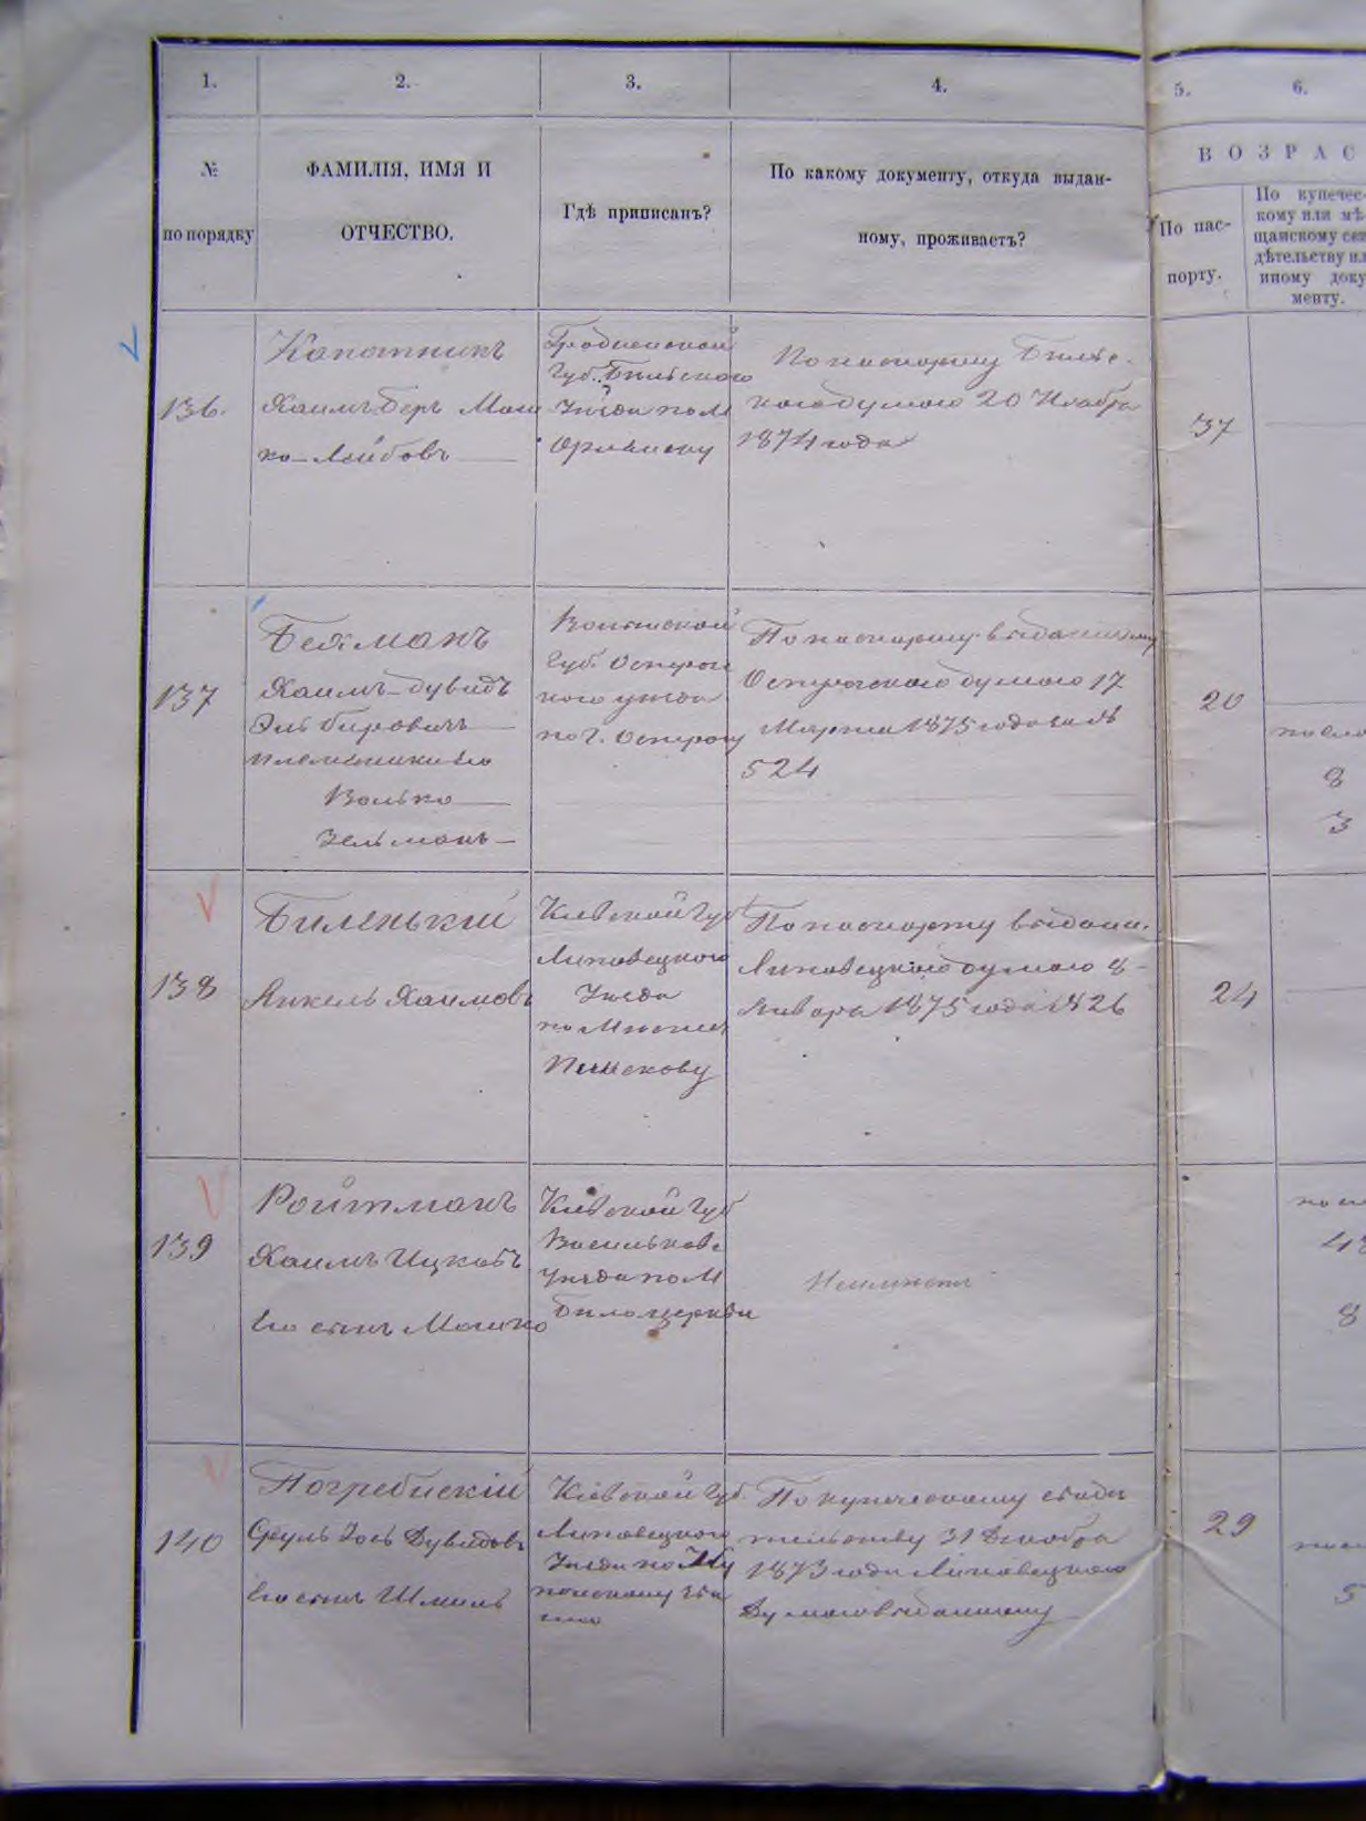 1.
2.
3.
4.
5.
6.
№
по порядку
ФАМИЛІЯ, ИМЯ И
ОТЧЕСТВО.
Гдѣ приписанъ?
По какому документу, откуда выдан-
ному, проживаетъ?
ВОЗРАС
По пас-
порту.
По купечес-
кому или мѣ-
щанскому сви
дѣтельству ил
иному доку
менту.
136.
Капотникъ
Хаимъ Беръ Мош
ко-Лейбовъ
Гродненской
Губ. Бѣльскаго
Уѣзда по М
Орлянску
По паспорту Бѣльс-
кою думою 20 Ноября
1874 года
37
137
Бехманъ
Хаимъ-Дувидъ
племянники его
Волько
Зельманъ
Волынской
Губ. Острож
кого уѣзда
по г. Острогу
По паспорту выданному
Острожскою думою 17
Марта 1875 года за №
524
20
8
3
138
Биленькій
Янкель Хаимовъ
Кіевской губ
Липовецкого
Уѣзда
По паспорту выдан.
Липовецкою думою 8
Января 1875 года № 26
24
139
Ройтманъ
Хаимъ Ицковъ
Его сынъ Мошко
Кіевской губ
Васильков.
Уѣзда по М
Білоцеркви
8
140
Погребискій
Сруль Іось Дувидовъ
Его сынъ Шмиль
Кіевской губ.
Липовецкого
По купеческому свидѣ
тельству 31 Декабря
1873 года Липовецкою
Думою выданному
29
5